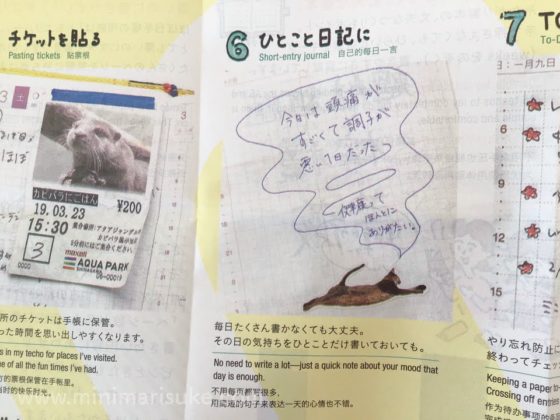 チケットを貼る
Pasting tickets 貼票根
3 土
カピバラにごはん
19.03.23 ¥200
15:30
集合場所:アクアジャングル
5分前にはご集合ください。
3
maxell
AQUA PARK
SHINAGAWA
06-00019
所のチケットは手帳に保管。
った時間を思い出しやすくなります。
s in my techo for places I've visited.
e of all the fun times I've had.
的票根保管在手帳里。
当时的快乐时光。
6 ひとこと日記に
Short-entry journal 自己的每日一言
今日は頭痛が
すごくて調子が
悪い1日だった
健康って
ほんとに
ありがたい。
毎日たくさん書かなくても大丈夫。
その日の気持ちをひとことだけ書いておいても。
No need to write a lot—just a quick note about your mood that
day is enough.
不用每页都写很多,
用简短的句子来表达一天的心情也不错。
7 TO
To-D
一月九日
やり忘れ防止に
終わってチェッ
Keeping a
Crossing off
作为待办事项
www.minimarisuke